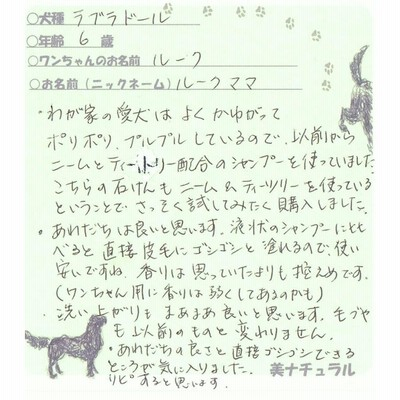 ○犬種 ラブラドール
○年齢 6 歳
○ワンちゃんのお名前 ルーク
○お名前(ニックネーム) ルークママ
・わが家の愛犬は よく かゆがって
ポリポリ、プルプル しているので、以前から
ニームとティートリー配合のシャンプーを使っていました
こちらの石けんも ニーム&ティーツリーを使っている
ということで さっそく試してみたく 購入しました。
・あわだちは良いと思います。液状のシャンプーにくら
べると 直接皮毛にゴシゴシと 塗れるので、使い
安いですね。香りは 思っていたよりも 控えめです。
(ワンちゃん用に香りは 弱くしてあるのかも)
・洗い上がりも まぁまぁ 良いと思います。毛づや
も 以前のものと 変わりません。
・あわだちの良さと 直接ゴシゴシできる
ところが気に入りました。
リピすると思います。
美ナチュラル